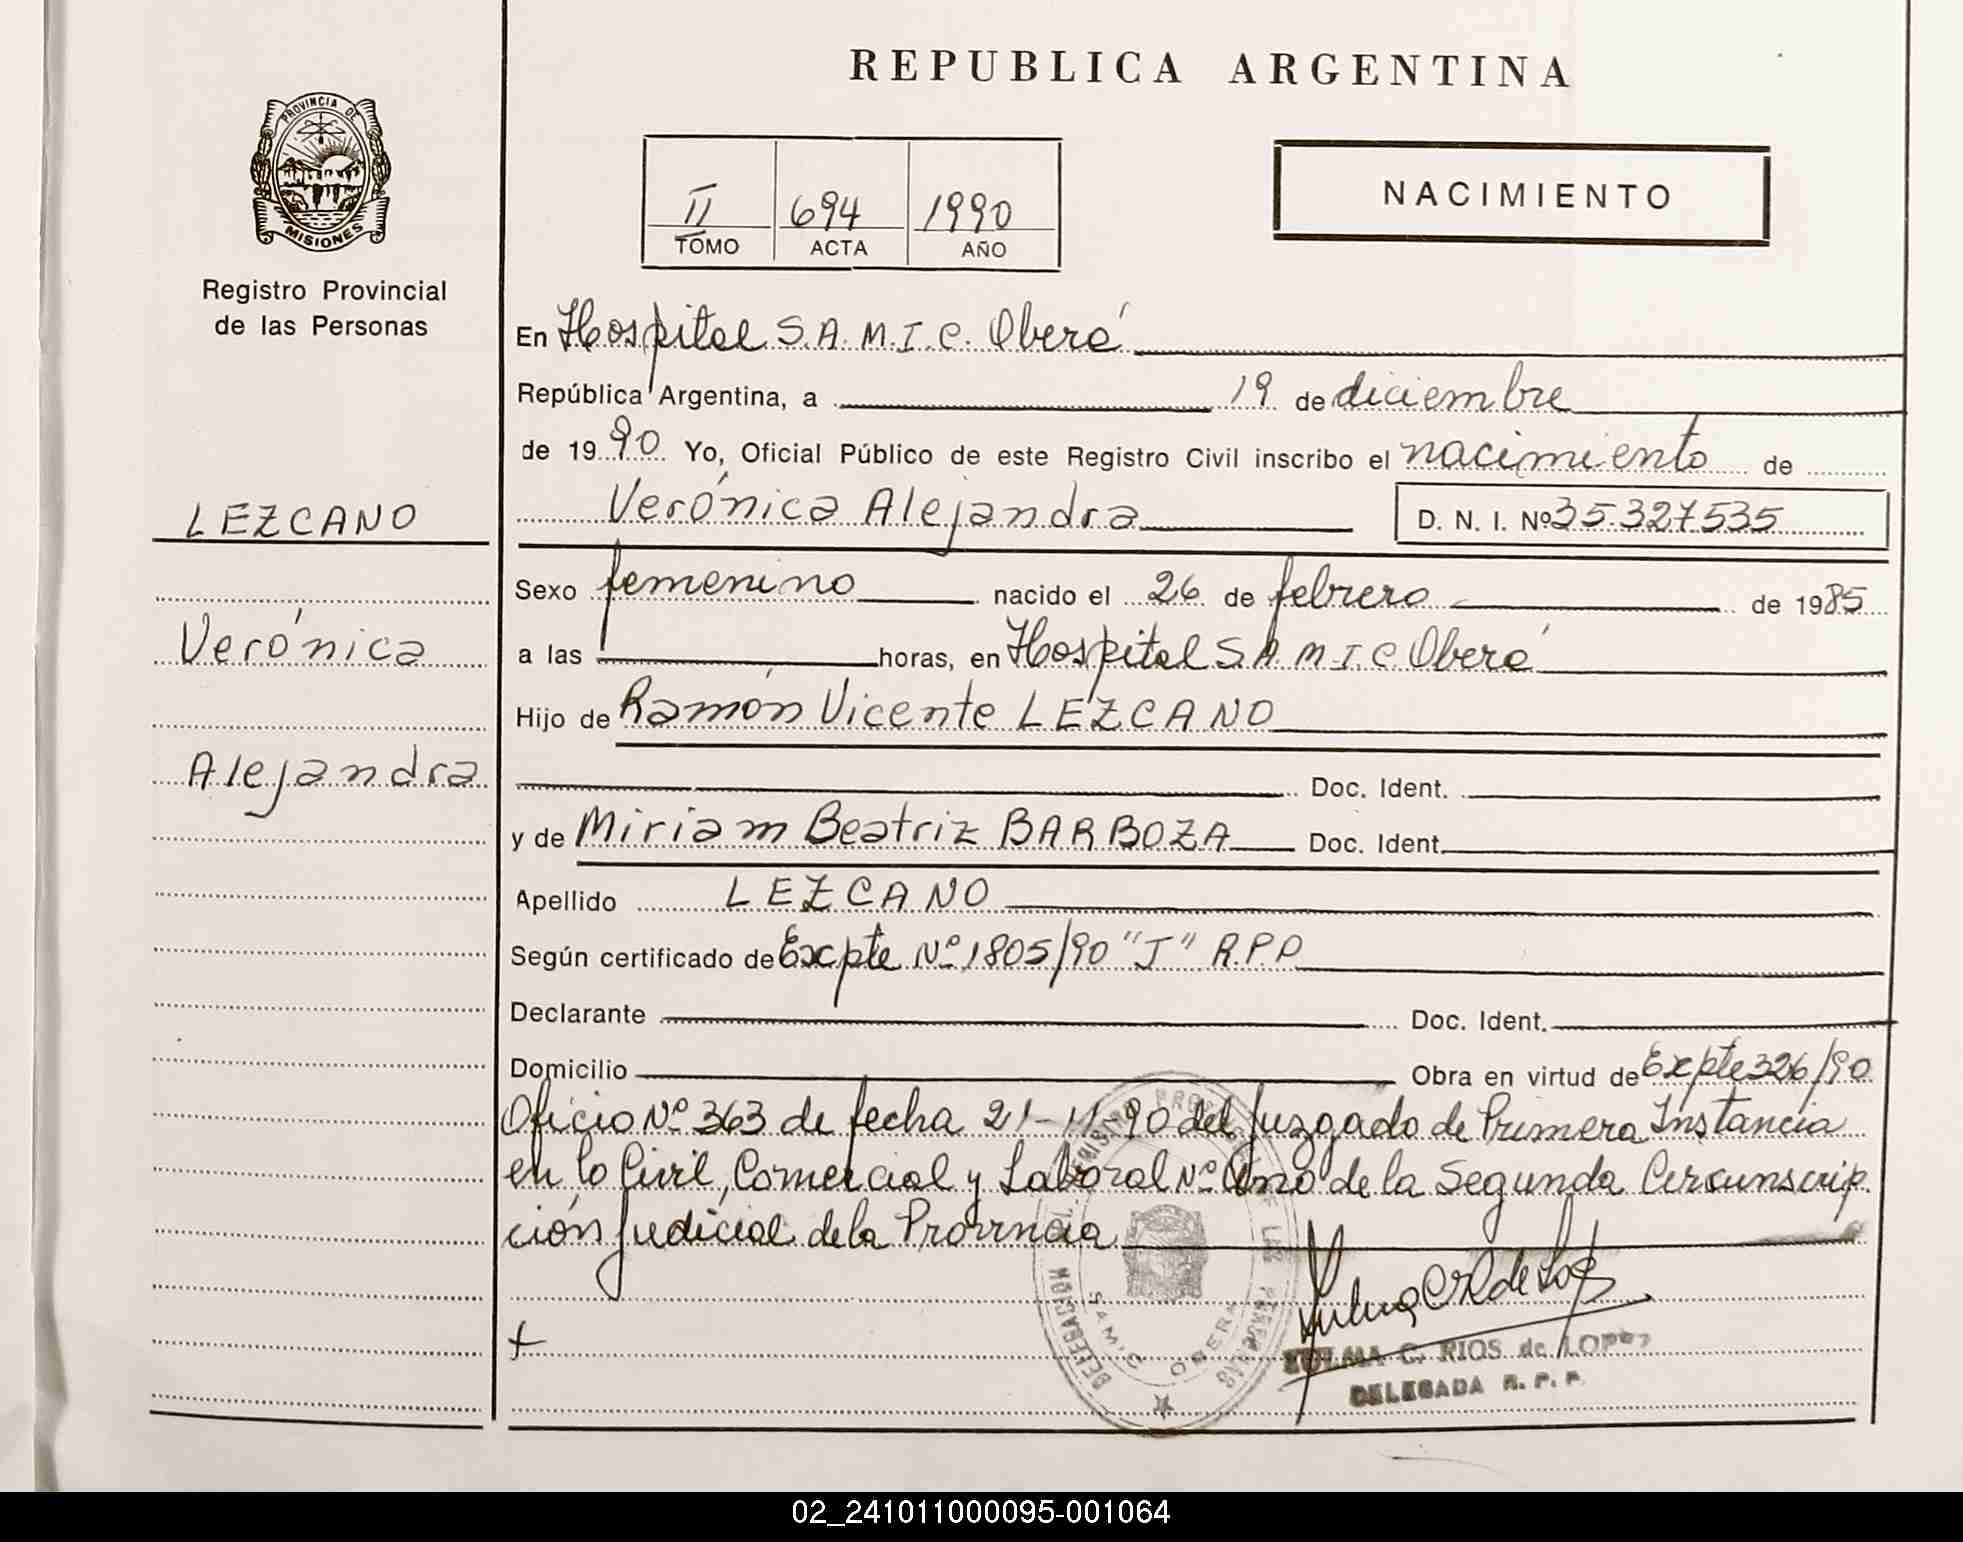 REPUBLICA ARGENTINA
PROVINCIA DE
MISIONES
Registro Provincial
de las Personas
II 694 1990
TOMO ACTA AÑO
NACIMIENTO
LEZCANO
Verónica
Alejandra
En Hospital S.A.M.I.C. Oberá
República Argentina, a 19 de diciembre
de 1990 Yo, Oficial Público de este Registro Civil inscribo el nacimiento de
Verónica Alejandra D. N. I. Nº 35.327.535
Sexo femenino nacido el 26 de febrero de 1985
a las horas, en Hospital S.A.M.I.C. Oberá
Hijo de Ramón Vicente LEZCANO
Doc. Ident.
y de Miriam Beatriz BARBOZA Doc. Ident.
Apellido LEZCANO
Según certificado de Expte Nº 1805/90 "J" R.P.P
Declarante Doc. Ident.
Domicilio Obra en virtud de Expte 326/90
Oficio Nº 363 de fecha 21-11-90 del Juzgado de Primera Instancia
en lo Civil, Comercial y Laboral Nº Uno de la Segunda Circunscrip
ción judicial de la Provincia
DELEGACION
SAMIC OBERA
C. RIOS de LOPEZ
DELEGADA R. P. P.
02_241011000095-001064